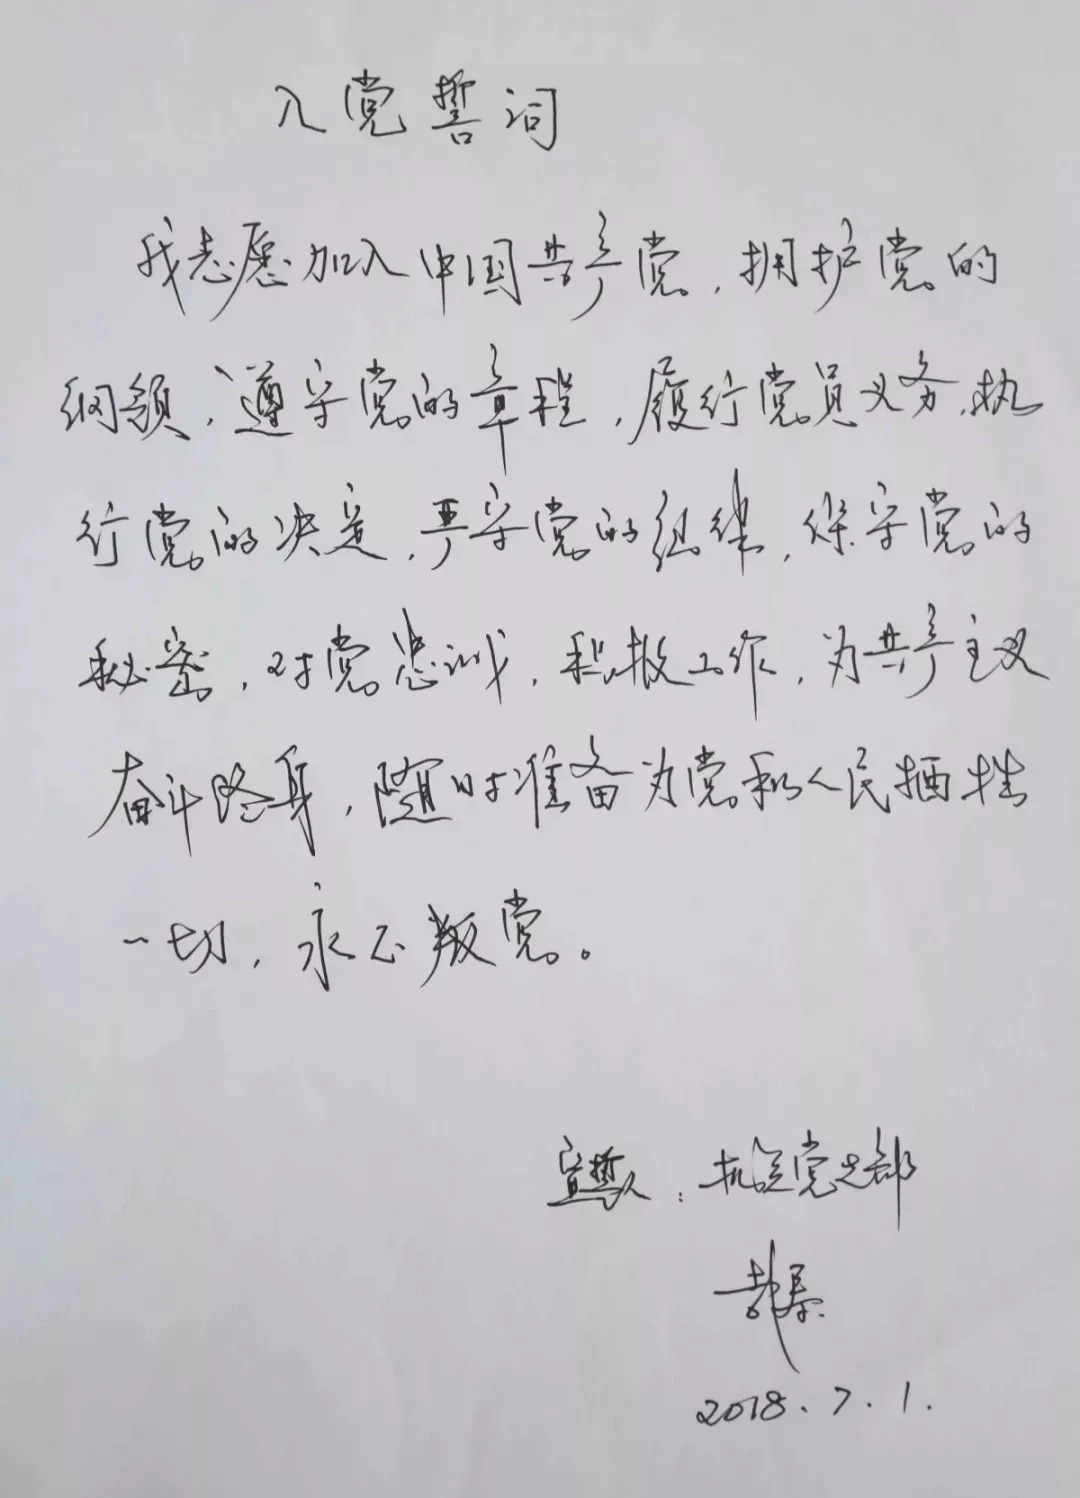 入党誓词
我志愿加入中国共产党，拥护党的
纲领，遵守党的章程，履行党员义务，执
行党的决定，严守党的纪律，保守党的
秘密，对党忠诚，积极工作，为共产主义
奋斗终身，随时准备为党和人民牺牲
一切，永不叛党。
宣誓人：机关党支部
2018.7.1.